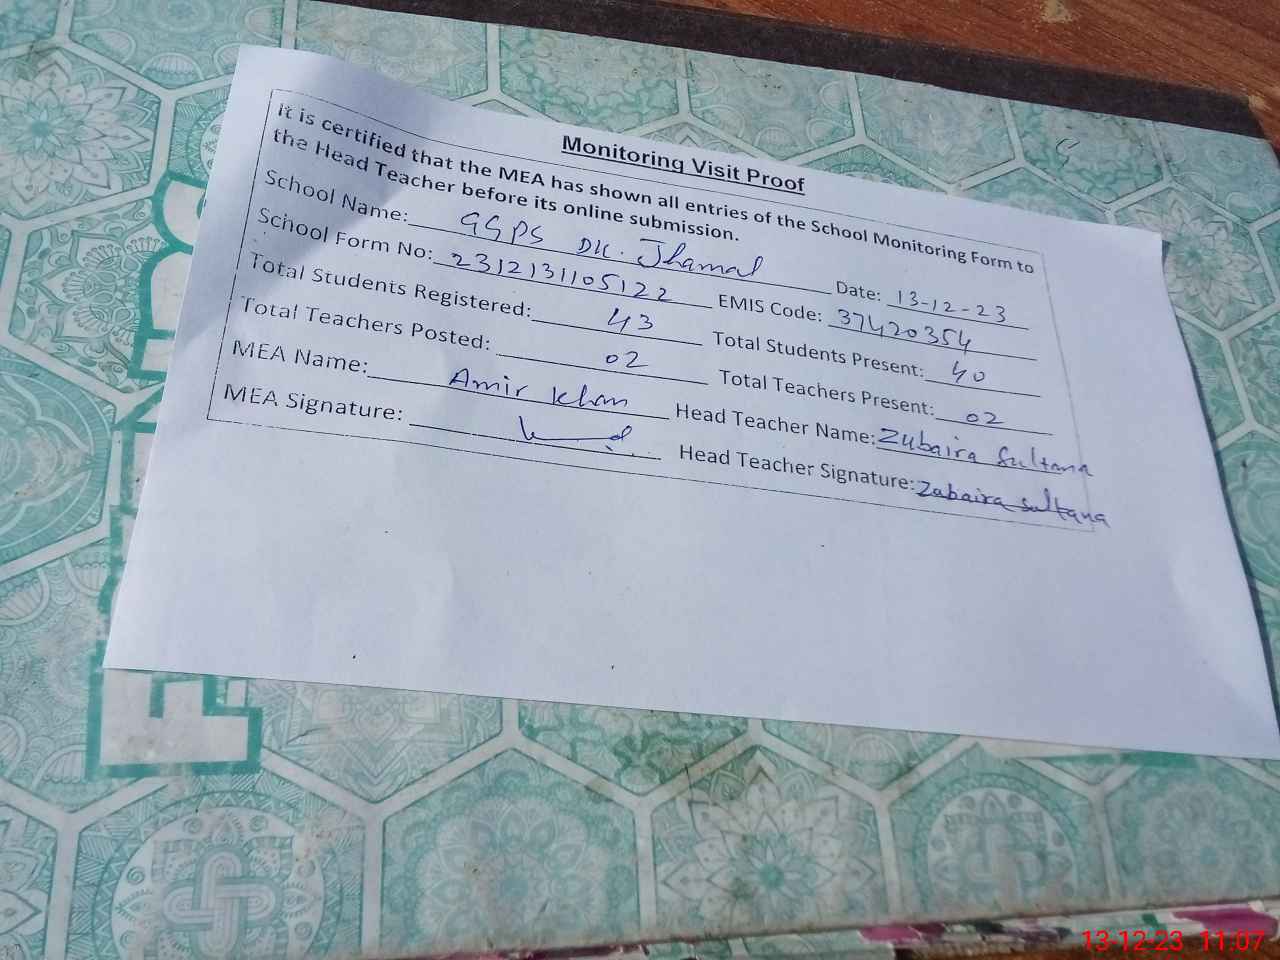 Monitoring Visit Proof
It is certified that the MEA has shown all entries of the School Monitoring Form to
the Head Teacher before its online submission.
School Name: GGPS DK. Jhamal Date: 13-12-23
School Form No: 2312131105122 EMIS Code: 37420354
Total Students Registered: 43 Total Students Present: 40
Total Teachers Posted: 02 Total Teachers Present: 02
MEA Name: Amir Khan Head Teacher Name: Zubaira Sultana
MEA Signature: Head Teacher Signature: Zubaira Sultana
13-12-23 11:07